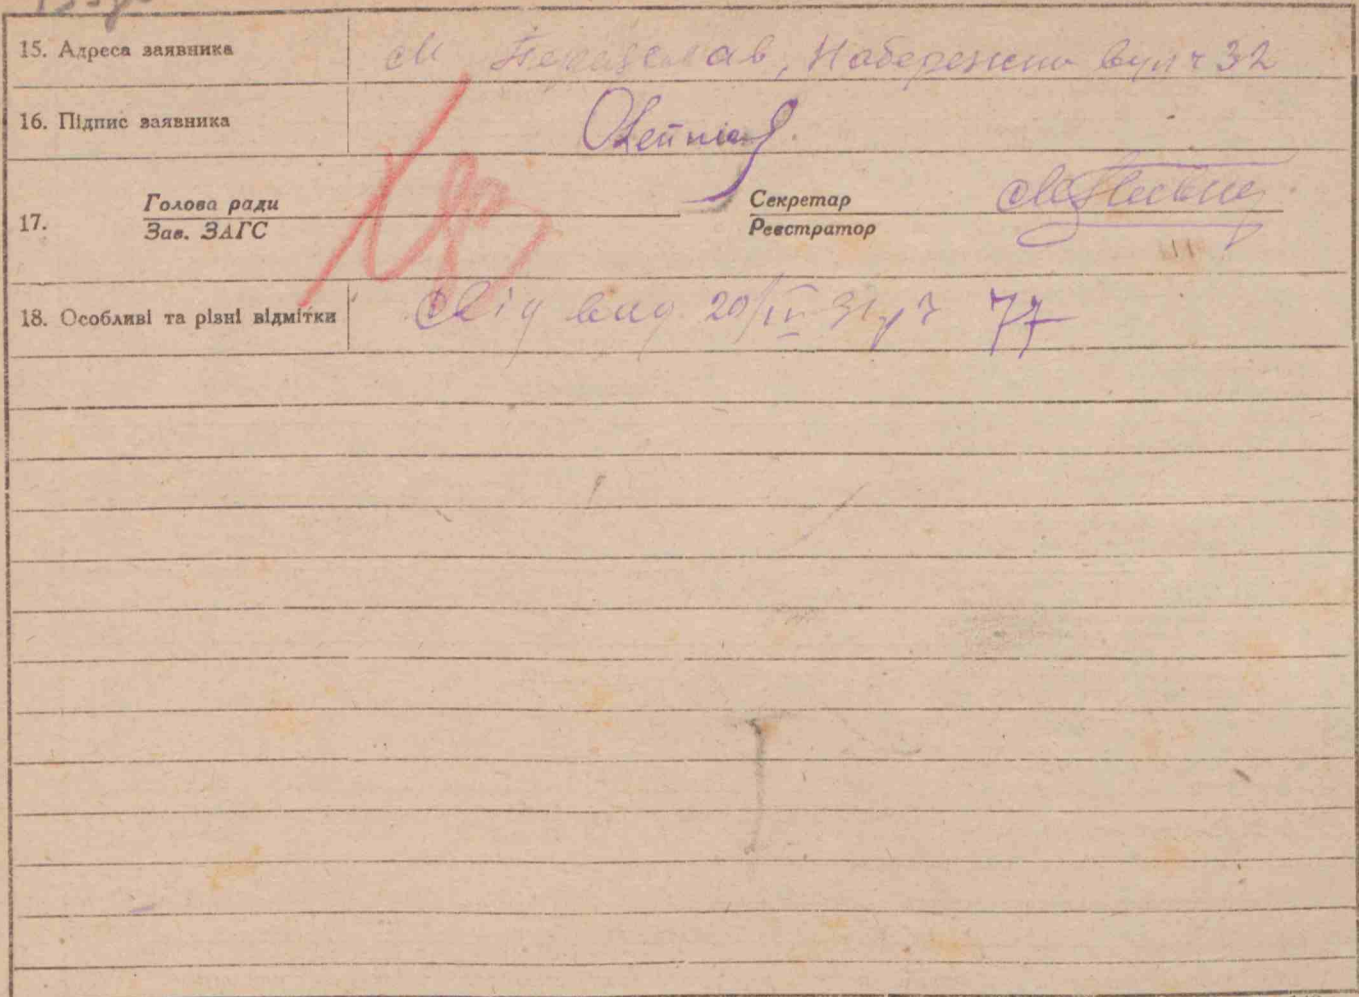 15. Адреса заявника м Переяслав, Набережна вул ч 32
16. Підпис заявника
17. Голова ради
Зав. ЗАГС
Секретар
Реєстратор
18. Особливі та різні відмітки вид 20/IV 31 р ч 77